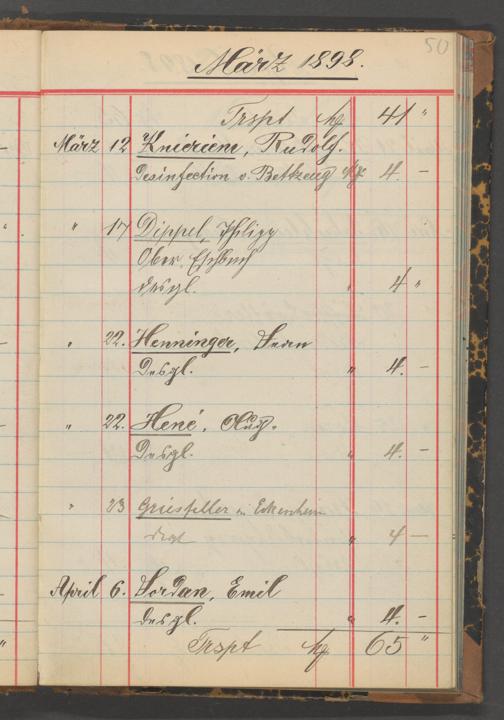 50
März 1898.
Trspt M 41 "
März 12 Knieriem, Rudolf.
Desinfection v. Bettzeug M 4. –
" 17 Dippel, Philipp
Ober Eschbach
desgl. " 4 "
" 22. Henninger, Jean
Desgl. " 4. –
" 22. Hené, Aug.
Desgl. " 4. –
" 23 Griesfeller in Eckenheim
" 4 –
April 6. Jordan, Emil
desgl. " 4. –
Trspt M 65 "